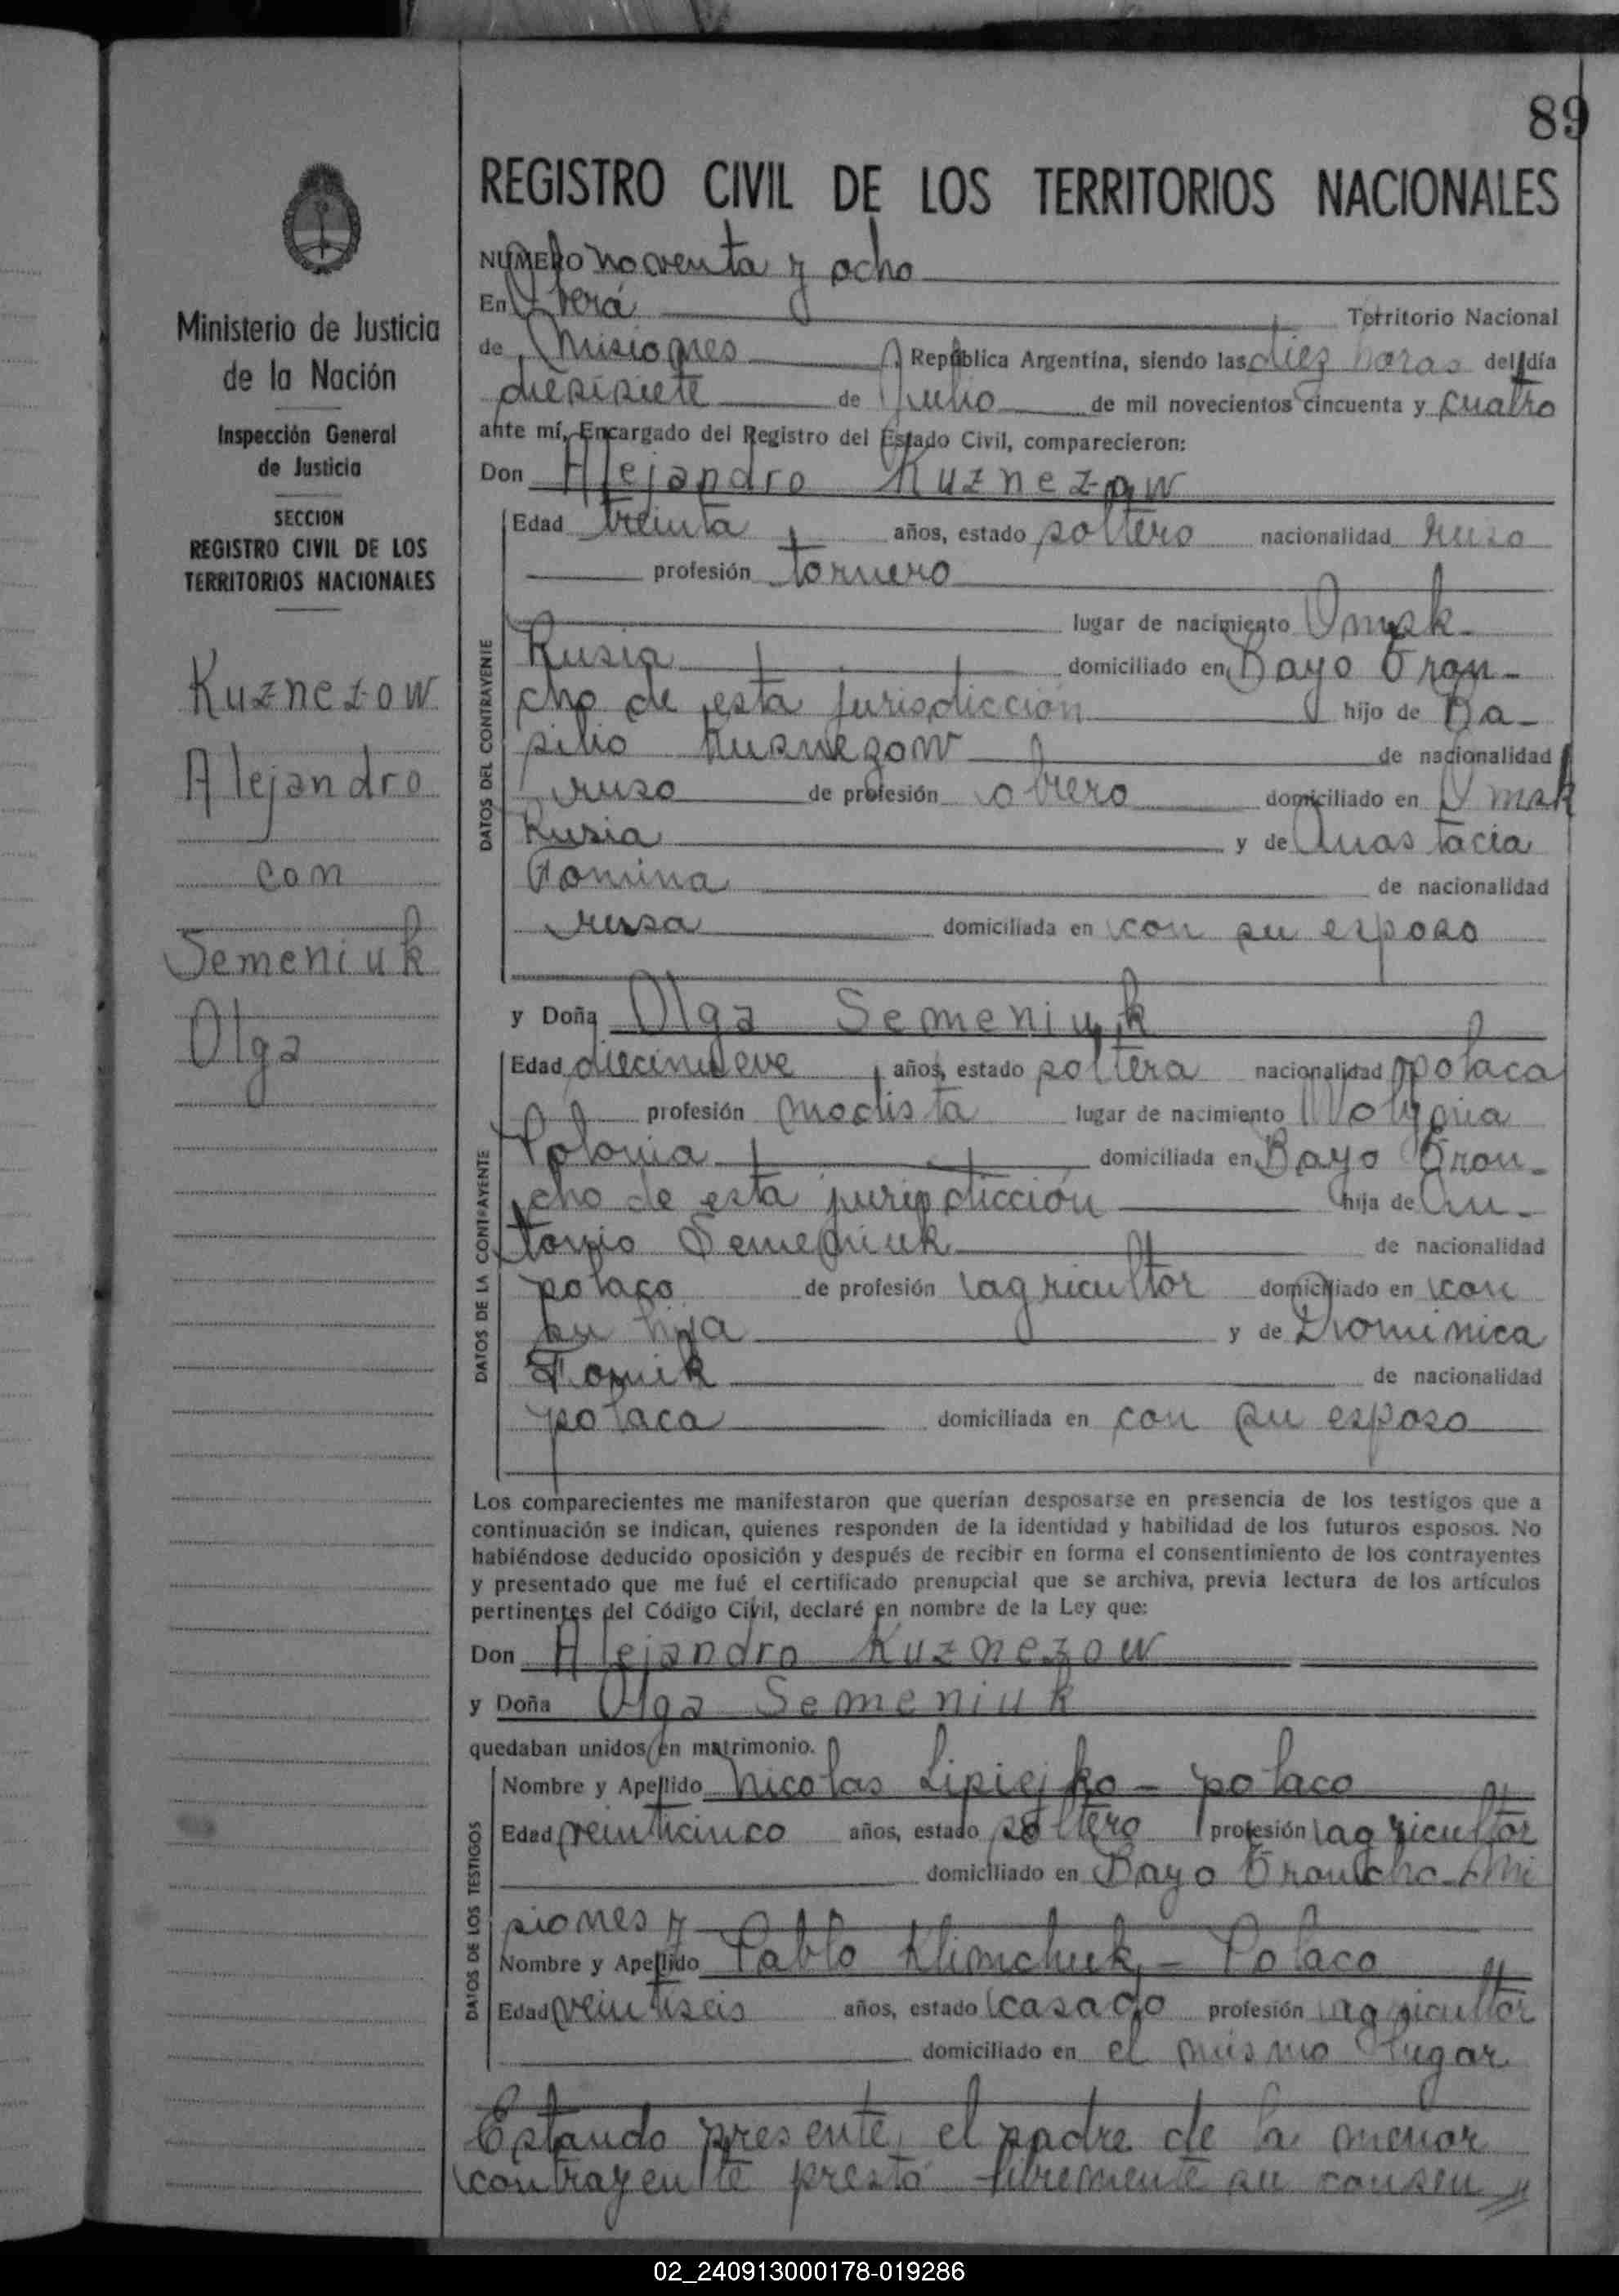 89
REGISTRO CIVIL DE LOS TERRITORIOS NACIONALES
NUMERO noventa y ocho
En Oberá Territorio Nacional
de Misiones República Argentina, siendo las diez horas del día
diesisiete de Julio de mil novecientos cincuenta y cuatro
ante mí, Encargado del Registro del Estado Civil, comparecieron:
Don Alejandro Kuznezow
Edad treinta años, estado soltero nacionalidad ruso
profesión tornero
lugar de nacimiento Omsk
Rusia domiciliado en Bayo Tron-
cho de esta jurisdicción hijo de Ba-
silio Kusnezow de nacionalidad
ruso de profesión obrero domiciliado en Omsk
Rusia y de Anastacia
Fomina de nacionalidad
rusa domiciliada en con su esposo
y Doña Olga Semeniuk
Edad diecinueve años, estado soltera nacionalidad polaca
profesión modista lugar de nacimiento Wolynia
Polonia domiciliada en Bayo Tron-
cho de esta jurisdicción hija de An-
tonio Semeniuk de nacionalidad
polaco de profesión agricultor domiciliado en con
su hija y de Dominica
Tomik de nacionalidad
polaca domiciliada en con su esposo
DATOS DEL CONTRAYENTE
DATOS DE LA CONTRAYENTE
Los comparecientes me manifestaron que querían desposarse en presencia de los testigos que a
continuación se indican, quienes responden de la identidad y habilidad de los futuros esposos. No
habiéndose deducido oposición y después de recibir en forma el consentimiento de los contrayentes
y presentado que me fué el certificado prenupcial que se archiva, previa lectura de los artículos
pertinentes del Código Civil, declaré en nombre de la Ley que:
Don Alejandro Kuznezow
y Doña Olga Semeniuk
quedaban unidos en matrimonio.
Nombre y Apellido Nicolas Lipiejko - polaco
Edad veinticinco años, estado soltero profesión agricultor
domiciliado en Bayo Troncho - Mi
siones y
Nombre y Apellido Pablo Klimchuk - Polaco
Edad veintiseis años, estado casado profesión agricultor
domiciliado en el mismo lugar
DATOS DE LOS TESTIGOS
Estando presente el padre de la menor
contrayente prestó libremente su consen
Ministerio de Justicia
de la Nación
Inspección General
de Justicia
SECCION
REGISTRO CIVIL DE LOS
TERRITORIOS NACIONALES
Kuznezow
Alejandro
con
Semeniuk
Olga
02_240913000178-019286